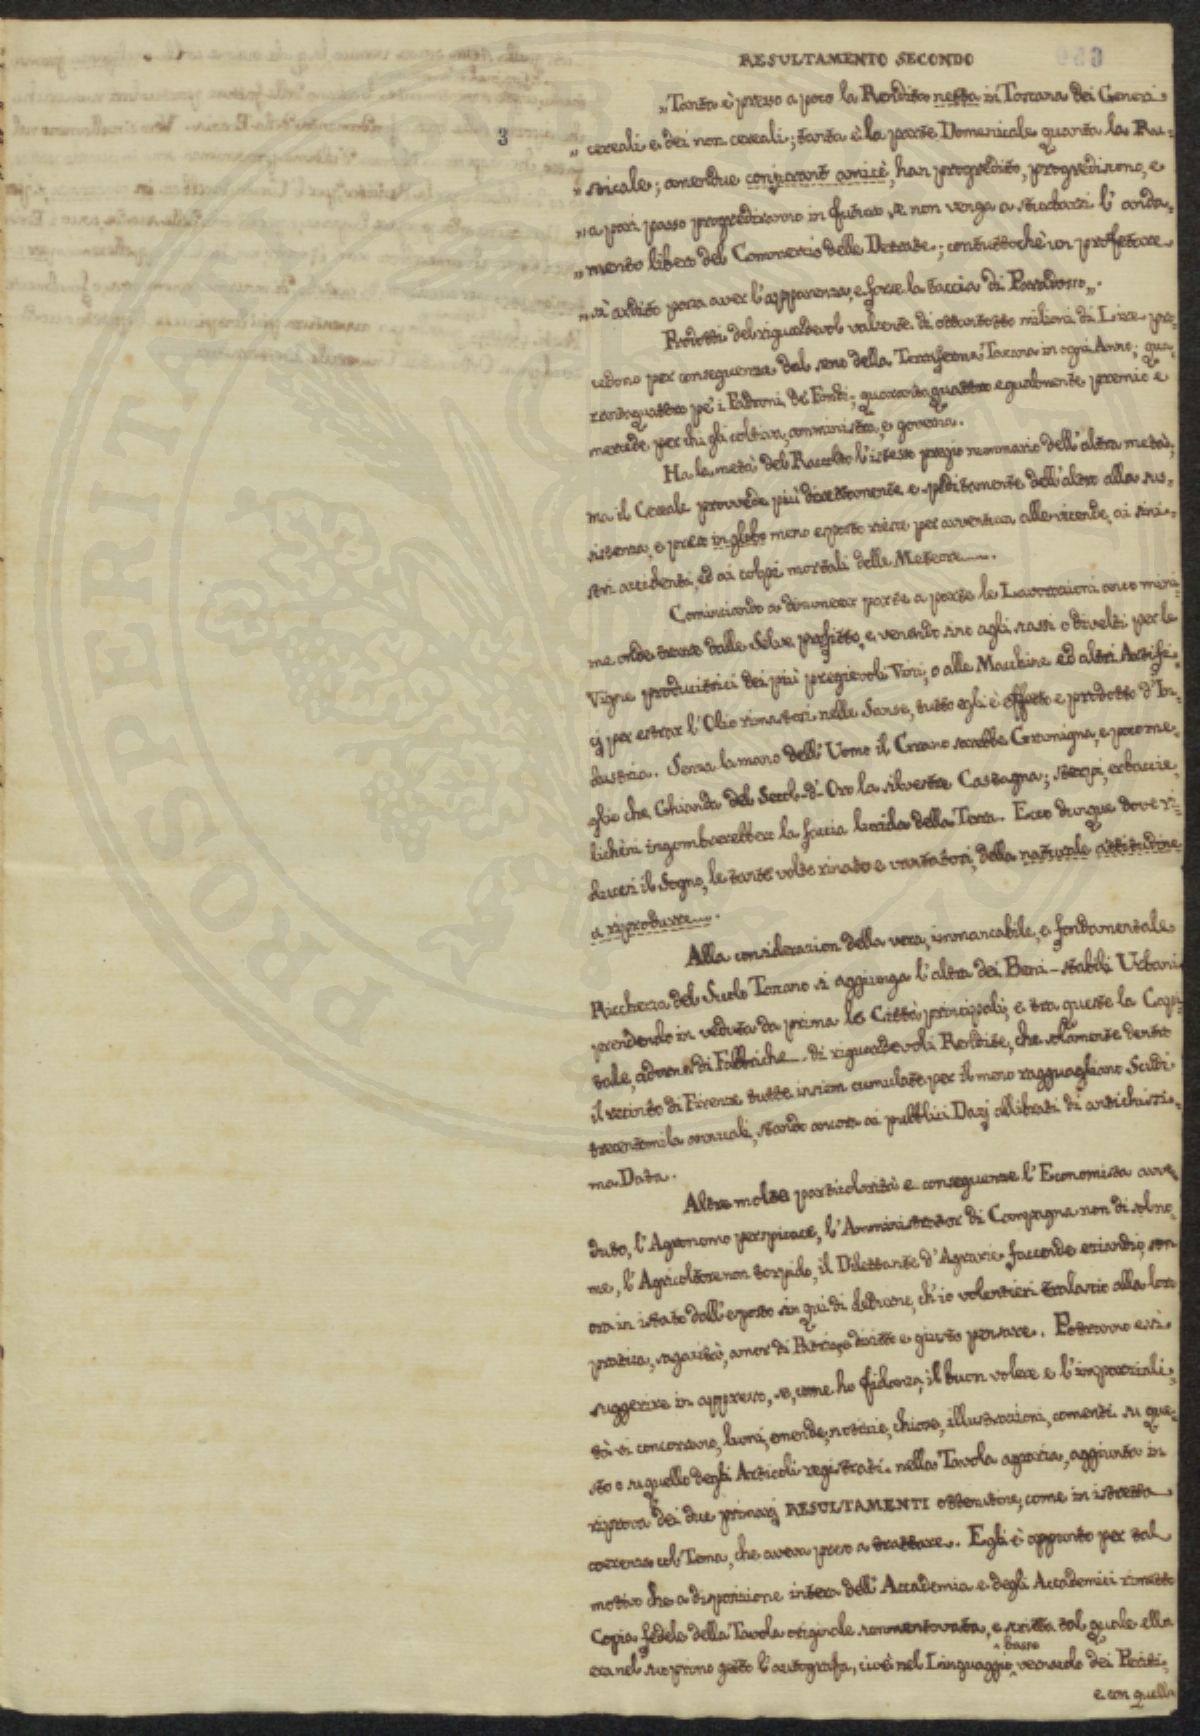 RESULTAMENTO SECONDO
3
„Tanta è presso a poco la Rendita netta in Toscana dei Generi
„ cereali e dei non cereali; tanta è la parte Domenicale quanta la Ru-
„ sticale; amendue conjurant amicè, han progredito, progrediscono, e
„ a pari passo progrediranno in futuro se non venga a sturbarsi l'anda-
„ mento libero del Commercio delle Derrate; contuttochè un proffetare
„ sì ardito possa aver l'apparenza, e forse la taccia di Paradosso„.
Prodotti del riguardevol valsente di ottantotto milioni di Lire pro-
cedono per conseguenza dal seno della Terraferma Toscana in ogni Anno; qua-
rantaquattro pe' i Padroni de' Fondi; quarantaquattro egualmente premio e
mercede per chi gli coltiva, amministra, e governa.
Ha la metà del Raccolto l'istesso pregio nummario dell'altra metà;
ma il Cereale provvede più direttamente e speditamente dell'altro alla sus-
sistenza, e preso in globo meno esposto viene per avventura alle vicende, ai sini-
stri accidenti, ed ai colpi mortali delle Meteore.....
Cominciando a dinumerar parte a parte le Lavorazioni anco mini-
me onde trarre dalle Selve profitto, e venendo sino agli scassi o divelti per le
Vigne produttrici dei più pregievoli Vini; o alle Macchine ed altri Artifi-
cj per estrar l'Olio rimastosi nelle Sanse, tutto egli è effetto e prodotto d'In-
dustria. Senza la mano dell'Uomo il Grano sarebbe Gramigna, e poco me-
glio che Ghianda del Secol-d'-Oro la silvestre Castagna; sterpi, erbaccie,
licheni ingombrerebbero la faccia lurida della Terra. Ecco dunque dove ri-
ducesi il Sogno, le tante volte rinato e vantatosi, della naturale attitudine
a riprodurre.....
Alla considerazion della vera, immancabile, e fondamentale
Ricchezza del Suolo Toscano si aggiunga l'altra dei Beni-stabili Urbani
prendendo in veduta da prima le Città principali, e tra queste la Capi-
tale, adorne di Fabbriche..... di riguardevoli Rendite, che solamente dentro
il recinto di Firenze tutte insiem cumulate per il meno ragguagliano Scudi
trecentomila annuali, stando ancora ai pubblici Dazj allibrati di antichissi-
ma Data.
Altre molte particolarità e conseguenze l'Economista avve-
duto, l'Agronomo perspicace, l'Amministrator di Campagna non di sol no-
me, l'Agricoltore non torpido, il Dilettante d'Agrarie faccende eziandio, son
ora in istato dall'esposto sin qui di dedurne, ch'io volentieri tralascio alla loro
pratica, sagacità, amor di Patria, e diritto e giusto pensare. Potranno essi
suggerire in appresso, se, come ho fidanza, il buon volere e l'imparziali-
tà vi concorrano, lumi, emende, notizie, chiose, illustrazioni, comenti su que-
sto o su quello degli Articoli registrati nella Tavola agraria, aggiunta in
riprova dei due primarj RESULTAMENTI ottenutine, come in istretta
coerenza col Tema, che aveva preso a trattare. Egli è appunto per tal
motivo che a disposizione intera dell'Accademia e degli Accademici rimetto
Copia fedele della Tavola originale rammentovata, e scritta tal quale ella
era nel suo primo getto l'autografa, cioè nel Linguaggio basso vernacolo dei Periti,
e con quella